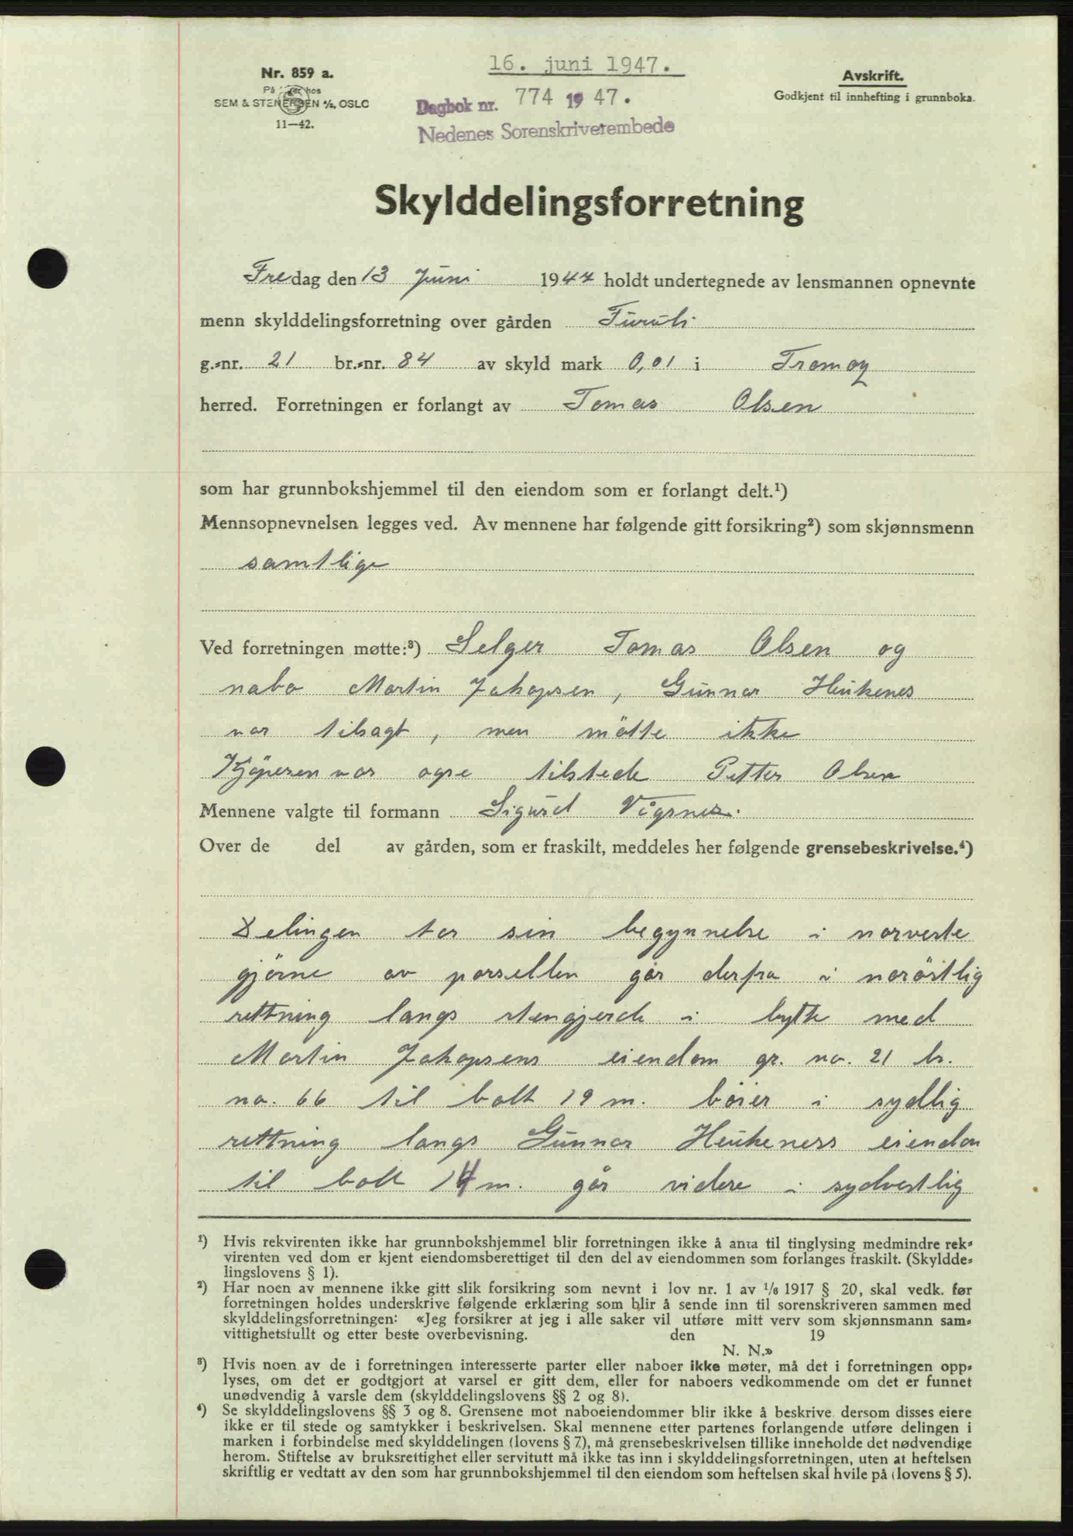 16. juni 1947.
Nr. 859 a.
Avskrift.
På lager hos
SEM & STENERSEN A/S, OSLO
Godkjent til innhefting i grunnboka.
11—42.
Dagbok nr. 774 1947.
Nedenes Sorenskriverembede
Skylddelingsforretning
Fredag den 13 Juni 1947 holdt undertegnede av lensmannen opnevnte
menn skylddelingsforretning over gården Furuli
g.-nr. 21 br.-nr. 84 av skyld mark 0,01 i Tromøy
herred. Forretningen er forlangt av Tomas Olsen
som har grunnbokshjemmel til den eiendom som er forlangt delt.¹)
Mennsopnevnelsen legges ved. Av mennene har følgende gitt forsikring²) som skjønnsmenn
samtlige
Ved forretningen møtte:³) Selger Tomas Olsen og
nabo Martin Jakopsen, Gunnar
var tilsagt, men mötte ikke
Kjöperen var ogse tilstede Petter Olsen
Mennene valgte til formann Sigurd
Over de del av gården, som er fraskilt, meddeles her følgende grensebeskrivelse.⁴)
Delingen tar sin begynnelse i norveste
gjörne av parsellen går derfra i noröstlig
rettning langs stengjerde i bytte med
Martin Jakopsens eiendom gr. no. 21 br.
no. 66 til bolt 19 m. böier i sydlig
rettning langs Gunnar eiendom
til bolt 14 m. går videre i sydvestlig
¹) Hvis rekvirenten ikke har grunnbokshjemmel blir forretningen ikke å anta til tinglysing medmindre rek-
virenten ved dom er kjent eiendomsberettiget til den del av eiendommen som forlanges fraskilt. (Skyldde-
lingslovens § 1).
²) Har noen av mennene ikke gitt slik forsikring som nevnt i lov nr. 1 av 1/6 1917 § 20, skal vedk. før
forretningen holdes underskrive følgende erklæring som blir å sende inn til sorenskriveren sammen med
skylddelingsforretningen: «Jeg forsikrer at jeg i alle saker vil utføre mitt verv som skjønnsmann sam-
vittighetsfullt og etter beste overbevisning. den 19
N. N.»
³) Hvis noen av de i forretningen interesserte parter eller naboer ikke møter, må det i forretningen opp-
lyses, om det er godtgjort at varsel er gitt dem, eller for naboers vedkommende om det er funnet
unødvendig å varsle dem (skylddelingslovens §§ 2 og 8).
⁴) Se skylddelingslovens §§ 3 og 8. Grensene mot naboeiendommer blir ikke å beskrive dersom disses eiere
ikke er til stede og samtykker i beskrivelsen. Skal mennene etter partenes forlangende utføre delingen i
marken i forbindelse med skylddelingen (lovens § 7), må grensebeskrivelsen tillike inneholde det nødvendige
herom. Stiftelse av bruksrettighet eller servitutt må ikke tas inn i skylddelingsforretningen, uten at heftelsen
skriftlig er vedtatt av den som har grunnbokshjemmel til den eiendom som heftelsen skal hvile på (lovens § 5).